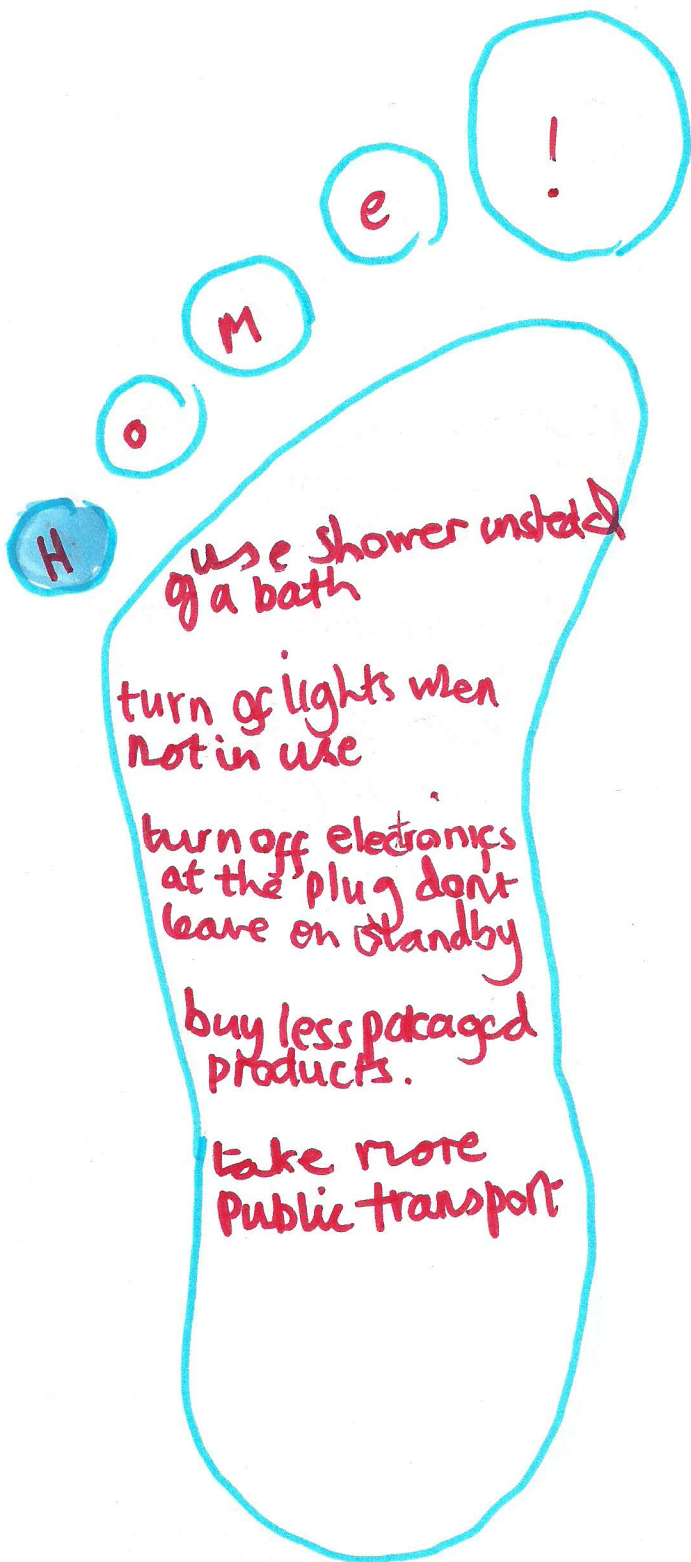 HOMe!
use shower unstead
of a bath
turn of lights when
not in use
turn off electronics
at the plug dont
leave on standby
buy less pakaged
products.
take more
public transport